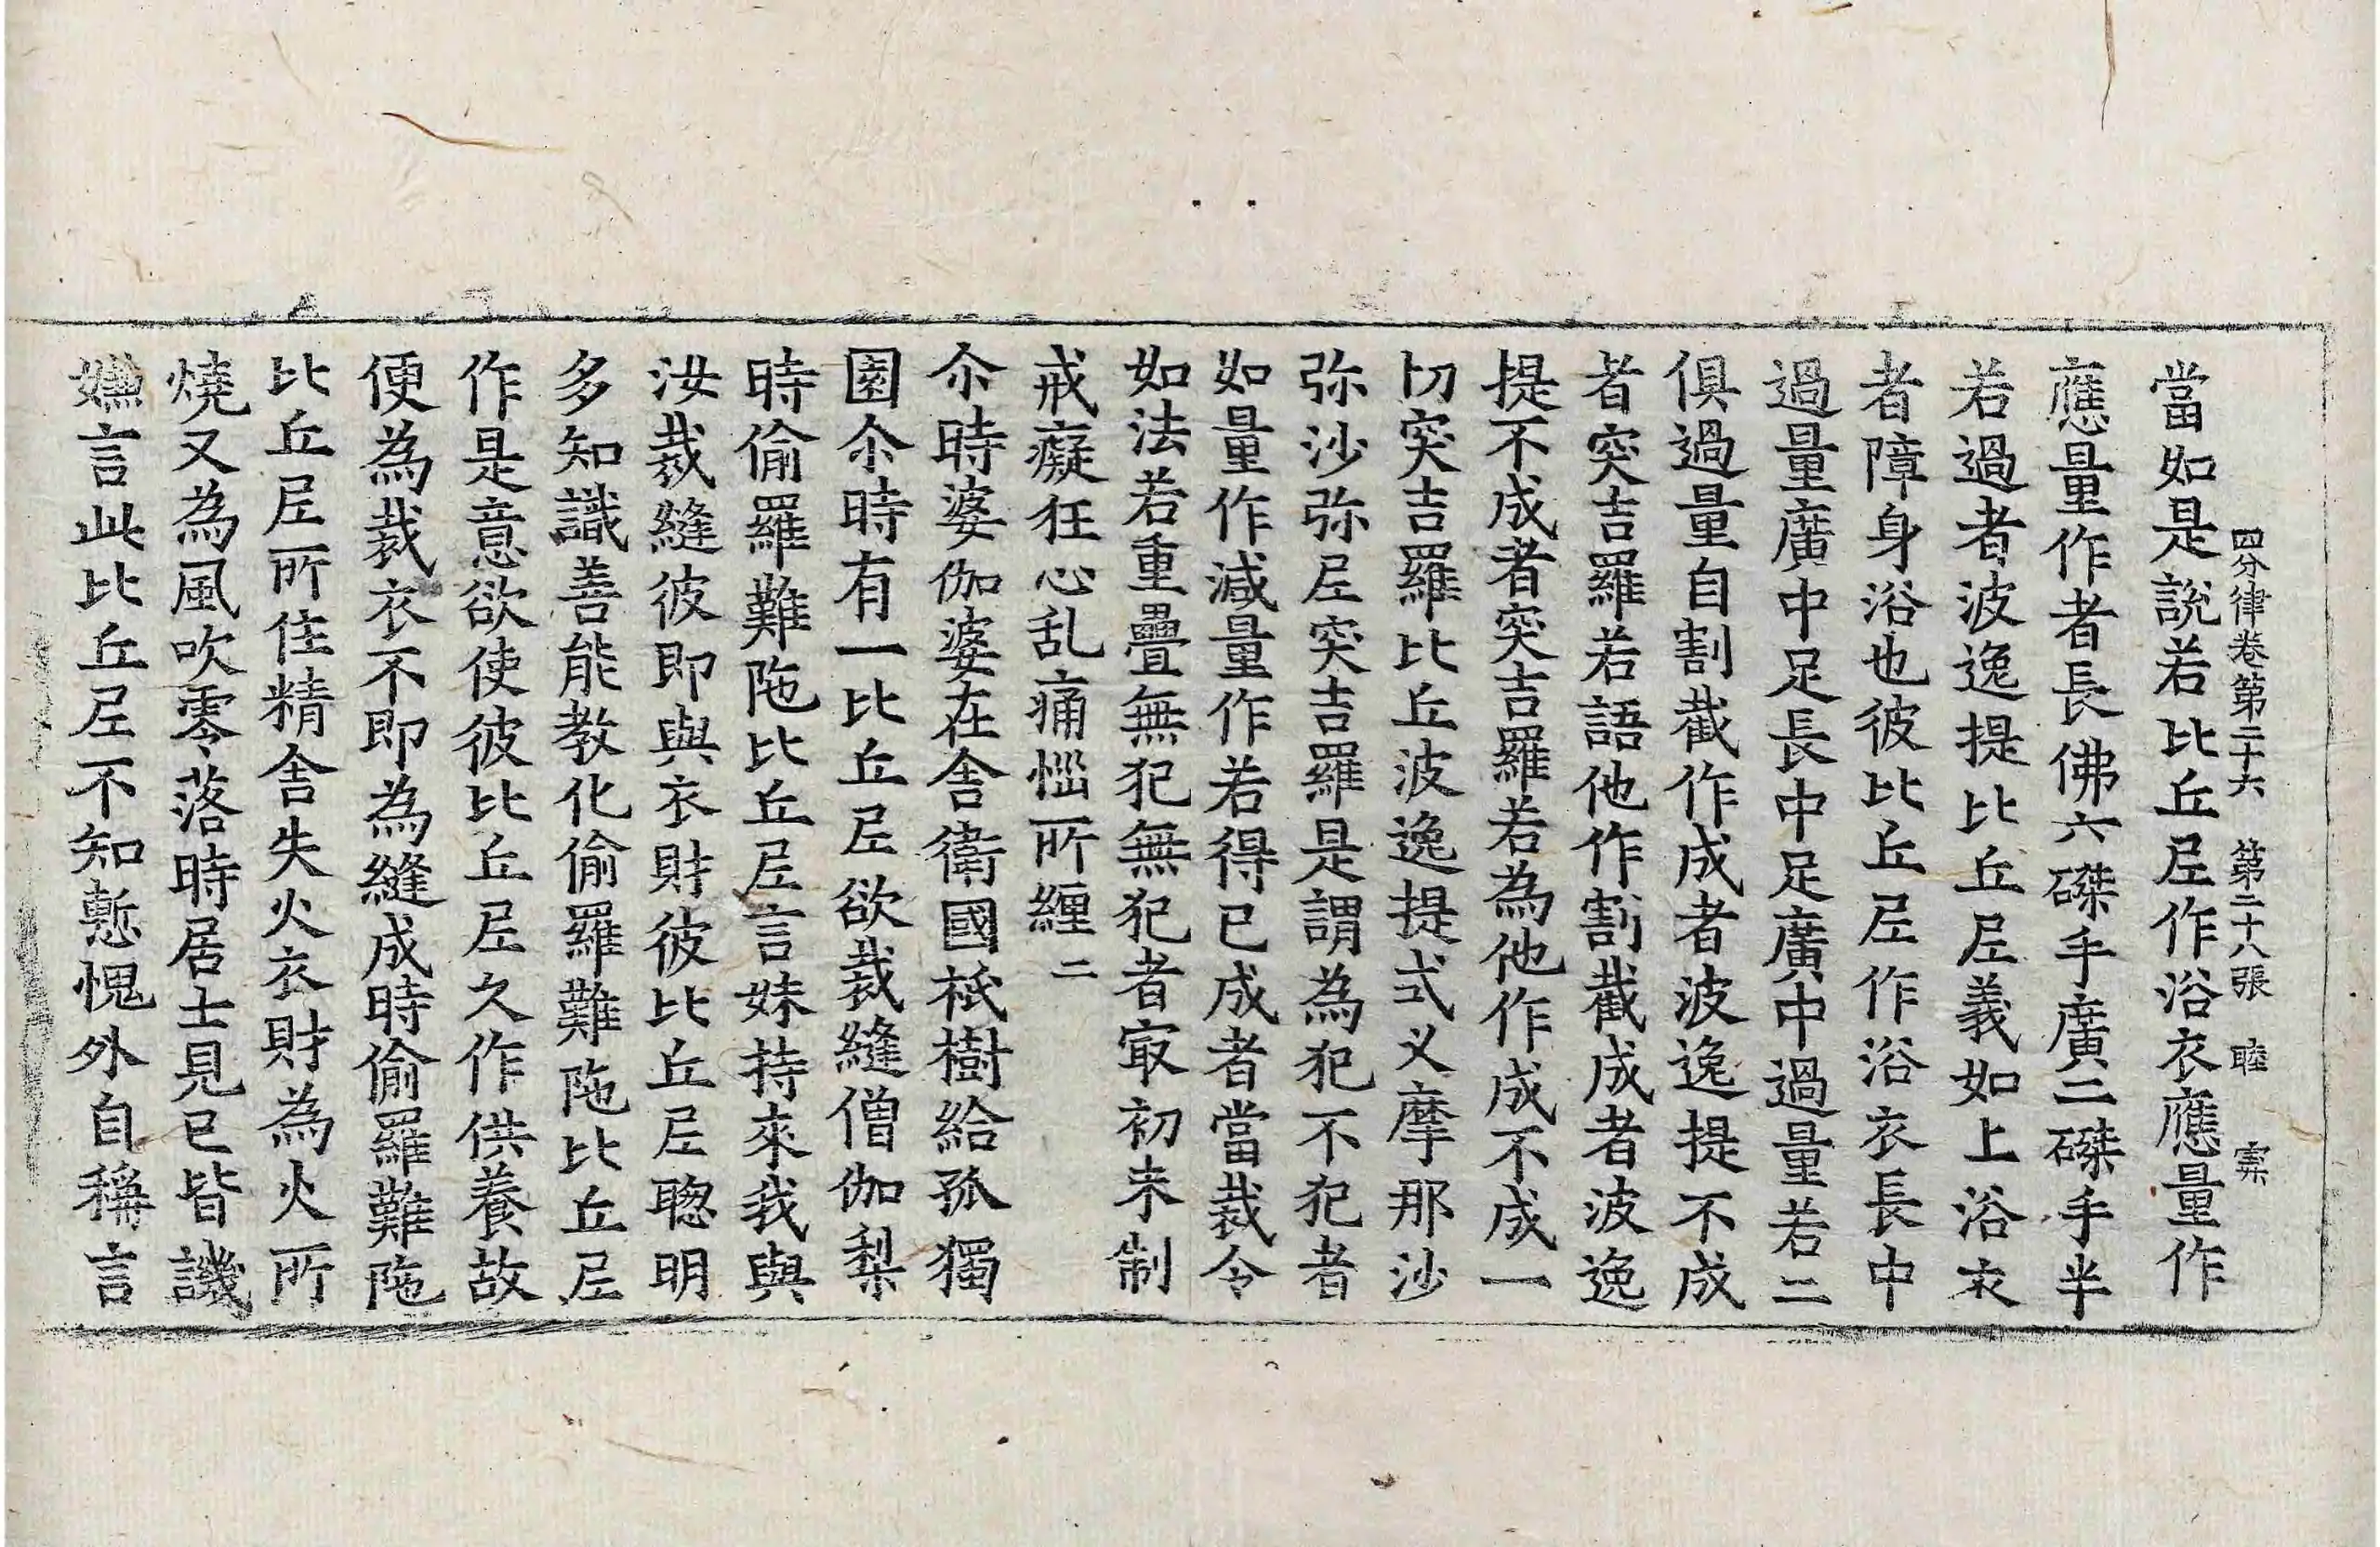 四分律卷第二十六　第二十八張　睦　寀
當如是說若比丘尼作浴衣應量作
應量作者長佛六磔手廣二磔手半
若過者波逸提比丘尼義如上浴衣
者障身浴也彼比丘尼作浴衣長中
過量廣中足長中足廣中過量若二
俱過量自割截作成者波逸提不成
者突吉羅若語他作割截成者波逸
提不成者突吉羅若為他作成不成一
切突吉羅比丘波逸提式叉摩那沙
弥沙弥尼突吉羅是謂為犯不犯者
如量作減量作若得已成者當裁令
如法若重疊無犯無犯者㝡初未制
戒癡狂心乱痛惱所纏二
尒時婆伽婆在舍衛國祇樹給孤獨
園尒時有一比丘尼欲裁縫僧伽梨
時偷羅難陁比丘尼言妹持來我與
汝裁縫彼即與衣財彼比丘尼聦明
多知識善能教化偷羅難陁比丘尼
作是意欲使彼比丘尼久作供養故
便為裁衣不即為縫成時偷羅難陁
比丘尼所住精舍失火衣財為火所
燒又為風吹零落時居士見已皆譏
嫌言此比丘尼不知慙愧外自稱言